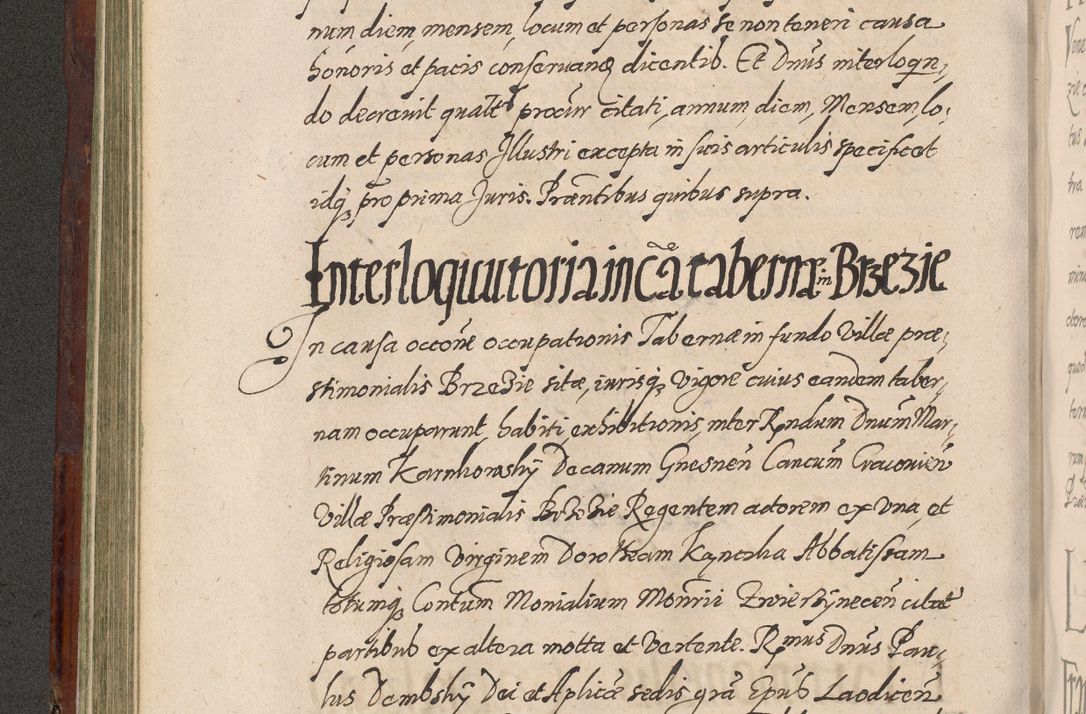 num, diem, mensem, locum et personas se non teneri causa
honoris et pacis conseruanę dicentib. Et Dnus interloqn,
do decreuit qualtr procur citati, annum, diem, Mensem, lo,
cum et personas Jllustri excepta in suis articulis specificet
idq, pro prima Juris. Præntibus quibus supra.
Interloquutoria in cã tabernæ in Brzezie
In causa occõne occupationis Tabernæ in fundo Villæ præ,
stimonialis Brzezie sitæ, iurisq, Vigore cuius eandem taber,
nam occuparunt, habiti, exhibitionis, inter Rndum Dnum Mar,
tinum Karnkowsky Decanum Gnesnen Cancum Cracouien
Villæ Præstimonialis Brzezie Regentem actorem ex Vna, et
Religiosam Virginem Dorotheam Kąncska Abbatissam
totumq, Contum Monialium Monrii Zwierzynecen citat
partibus ex altera motta et Vertente. Rmus Dnus Pau,
lus Dembsky Dei et Aplicæ sedis grã Epus Laodicen